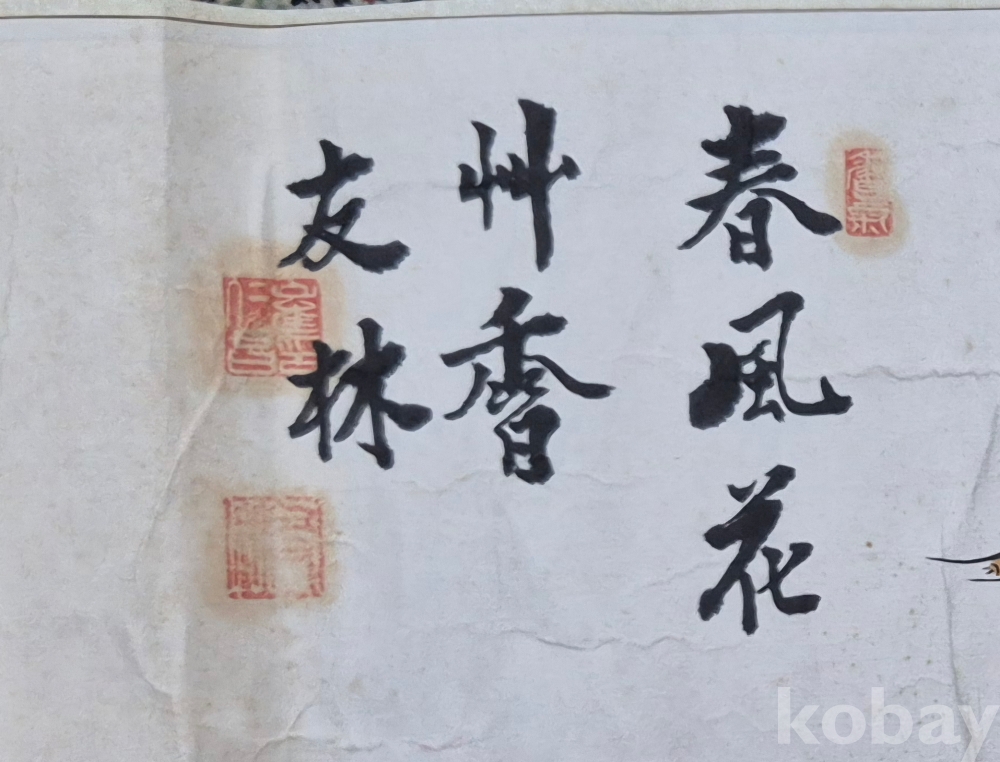 春風花
艸香
友林
kobay